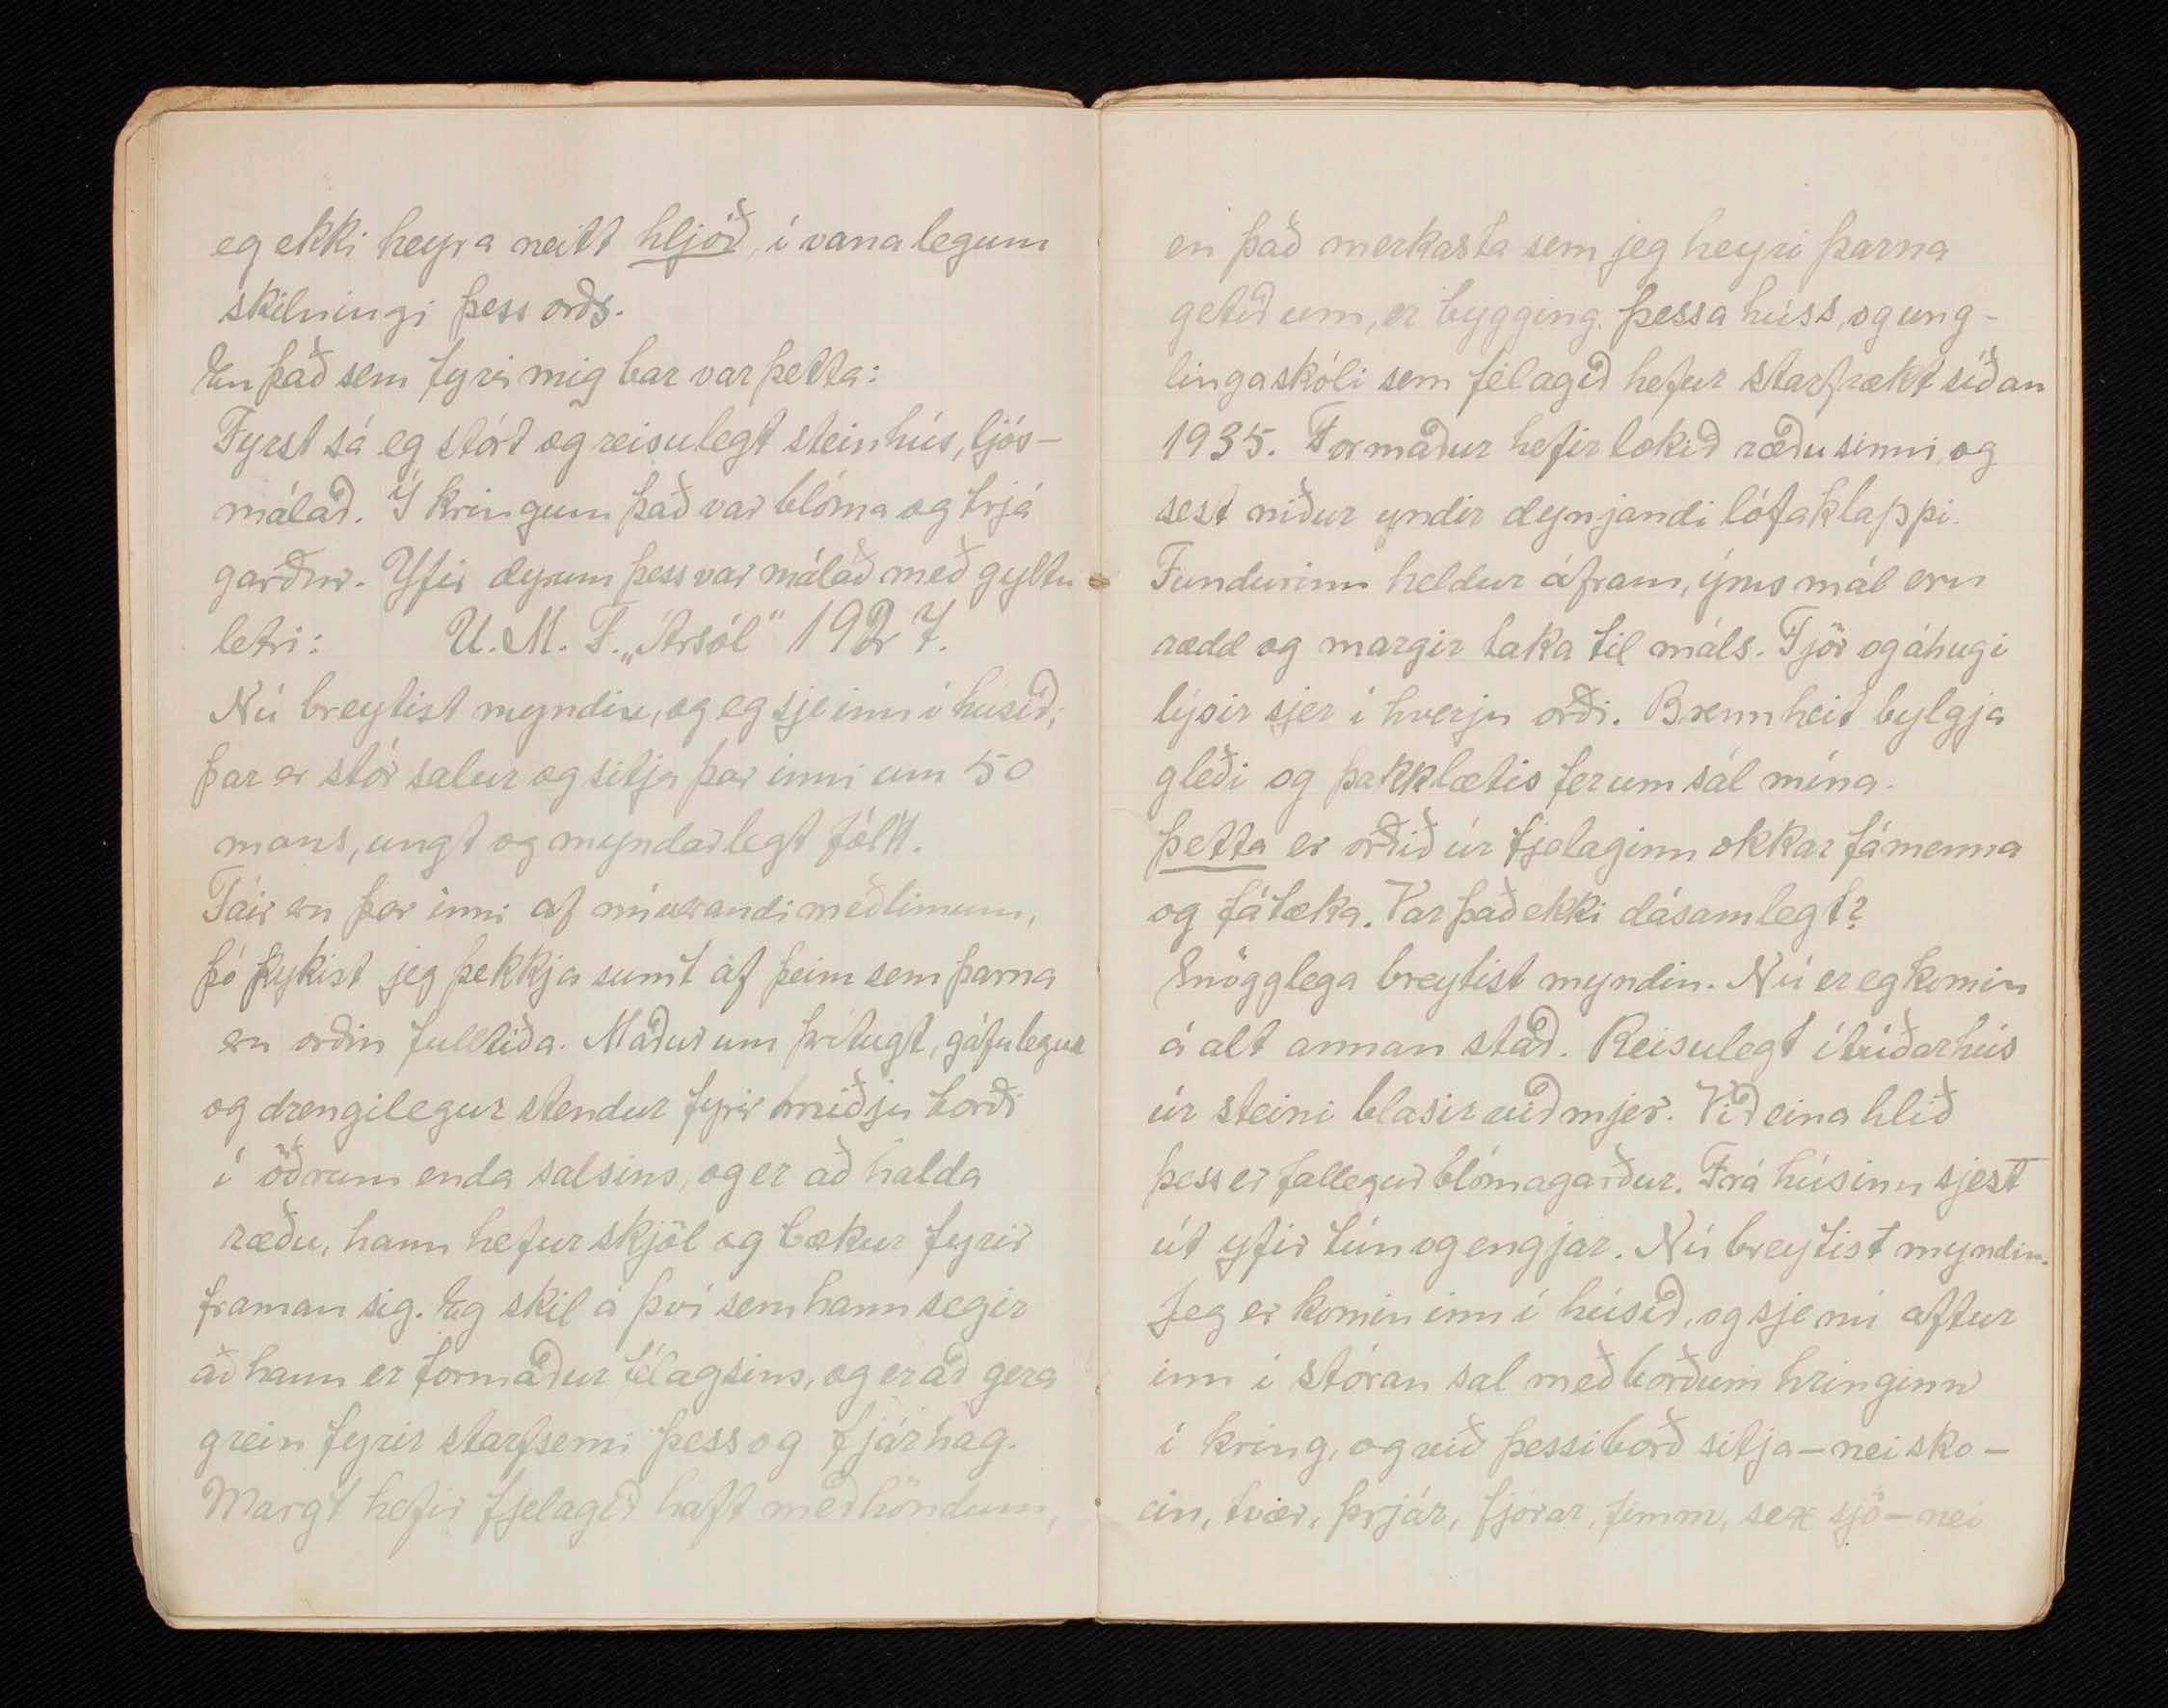 eg ekki heyra neitt hljóð, í vanalegum
skilningi þess orðs.
En það sem fyrir mig bar var þetta:
Fyrst sá eg stórt og reisulegt steinhús, ljós-
málað. Í kringum það var blóma og trjá
garður. Yfir dyrum þess var málað með gyltu
letri: U. M. F. „Ársól" 1927.
Nú breytist myndin, og eg sje inn í húsið;
þar er stór salur og sitja þar inni um 50
mans, ungt og myndarlegt fólk.
Fáir eru þar inni af núverandi meðlimum,
þó þykist jeg þekkja sumt af þeim sem þarna
eru orðin fulltíða. Maður um þrítugt, gáfulegur
og drengilegur stendur fyrir miðju borði
í öðrum enda salsins, og er að halda
ræðu, hann hefur skjöl og bækur fyrir
framan sig. Eg skil á því sem hann segir
að hann er formaður félagsins, og er að gera
grein fyrir starfsemi þess og fjárhag.
Margt hefir fjelagið haft með höndum,
en það merkasta sem jeg heyri þarna
getið um, er bygging þessa húss, og ung-
lingaskóli sem félagið hefur starfrækt síðan
1935. Formaður hefir lokið ræðu sinni, og
sest niður undir dynjandi lófaklappi.
Fundurinn heldur áfram, ýms mál eru
rædd og margir taka til máls. Fjör og áhugi
lýsir sjer í hverju orði. Brennheit bylgja
gleði og þakklætis fer um sál mína.
Þetta er orðið úr fjelaginu okkar fámenna
og fátæka. Var það ekki dásamlegt?
Snögglega breytist myndin. Nú er eg komin
á alt annan stað. Reisulegt íbúðarhús
úr steini blasir við mjer. Við eina hlið
þess er fallegur blómagarður. Frá húsinu sjest
út yfir tún og engjar. Nú breytist myndin.
Jeg er komin inn í húsið, og sje nú aftur
inn í stóran sal með borðum hringinn
í kring, og við þessi borð sitja – nei sko –
ein, tvær, þrjár, fjórar, fimm, sex sjö – nei